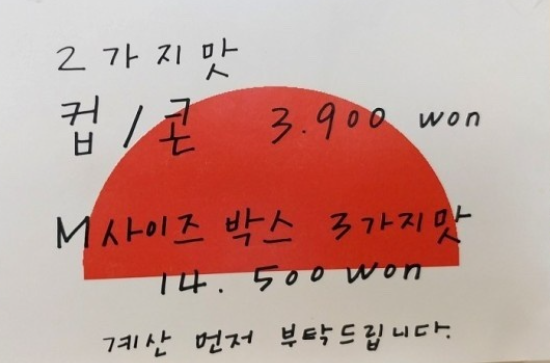 2가지맛
컵/콘 3.900 won
M사이즈 박스 3가지맛
14.500 won
계산 먼저 부탁드립니다.